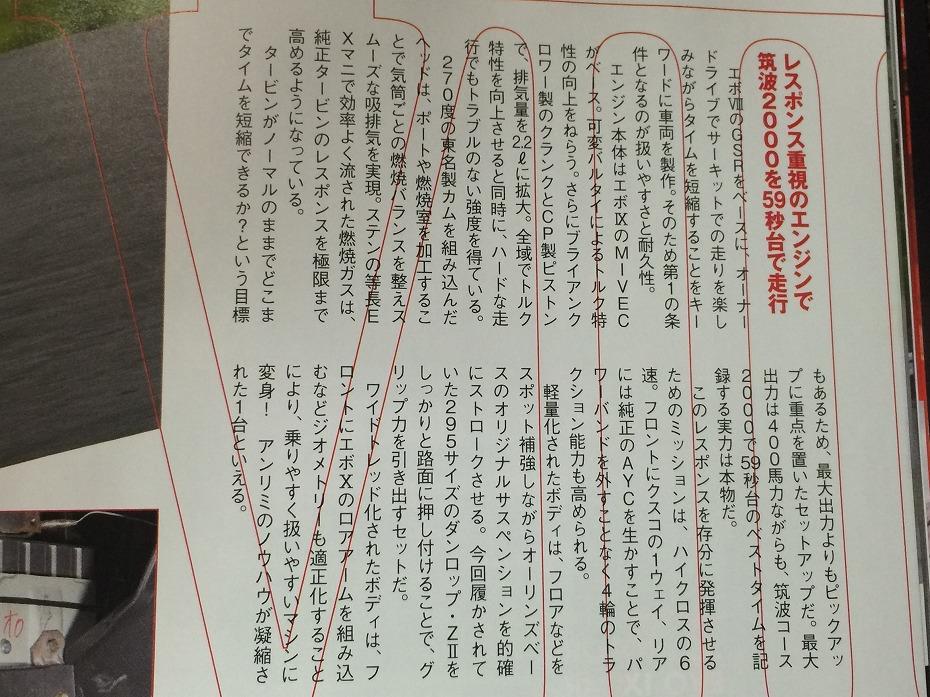 レスポンス重視のエンジンで
筑波2000を59秒台で走行
エボⅦのGSRをベースに、オーナー
ドライブでサーキットでの走りを楽し
みながらタイムを短縮することをキー
ワードに車両を製作。そのため第1の条
件となるのが扱いやすさと耐久性。
エンジン本体はエボⅨのMIVEC
がベース。可変バルタイによるトルク特
性の向上をねらう。さらにブライアンク
ロワー製のクランクとCP製ピストン
で、排気量を2.2ℓに拡大。全域でトルク
特性を向上させると同時に、ハードな走
行でもトラブルのない強度を得ている。
270度の東名製カムを組み込んだ
ヘッドは、ポートや燃焼室を加工するこ
とで気筒ごとの燃焼バランスを整えス
ムーズな吸排気を実現。ステンの等長E
Xマニで効率よく流された燃焼ガスは、
純正タービンのレスポンスを極限まで
高めるようになっている。
タービンがノーマルのままでどこま
でタイムを短縮できるか?という目標
もあるため、最大出力よりもピックアッ
プに重点を置いたセットアップだ。最大
出力は400馬力ながらも、筑波コース
2000で59秒台のベストタイムを記
録する実力は本物だ。
このレスポンスを存分に発揮させる
ためのミッションは、ハイクロスの6
速。フロントにクスコの1ウェイ、リア
には純正のAYCを生かすことで、パ
ワーバンドを外すことなく4輪のトラ
クション能力も高められる。
軽量化されたボディは、フロアなどを
スポット補強しながらオーリンズベー
スのオリジナルサスペンションを的確
にストロークさせる。今回履かされて
いた295サイズのダンロップ・ZⅡを
しっかりと路面に押し付けることで、グ
リップ力を引き出すセットだ。
ワイドトレッド化されたボディは、フ
ロントにエボXのロアアームを組み込
むなどジオメトリーも適正化すること
により、乗りやすく扱いやすいマシンに
変身! アンリミのノウハウが凝縮さ
れた1台といえる。